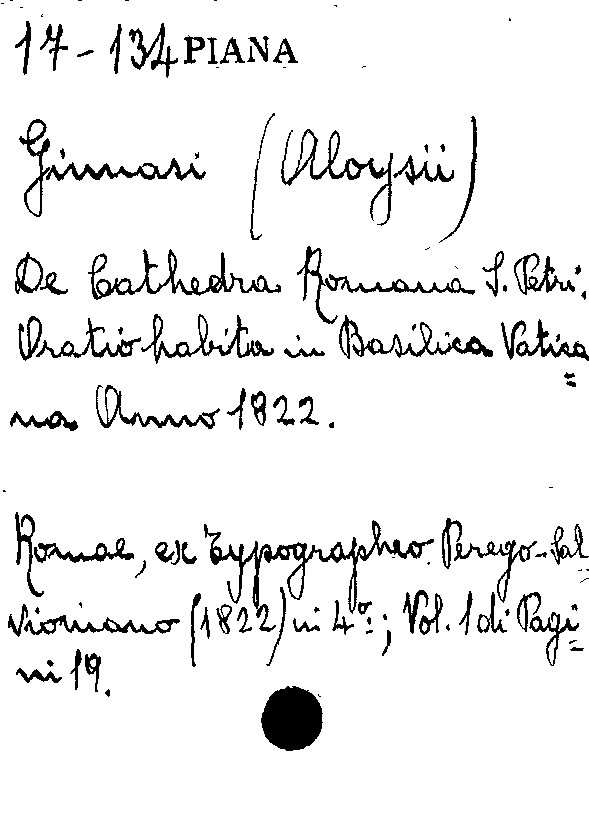 17-134 PIANA
Ginnasi (Aloysii)
De Cathedra Romana S. Petri.
Oratio habita in Basilica Vatica=
na Anno 1822.
Romae, ex Typographeo Perego-Sal=
vioniano (1822) in 4º; Vol. 1 di Pagi=
ni 19.